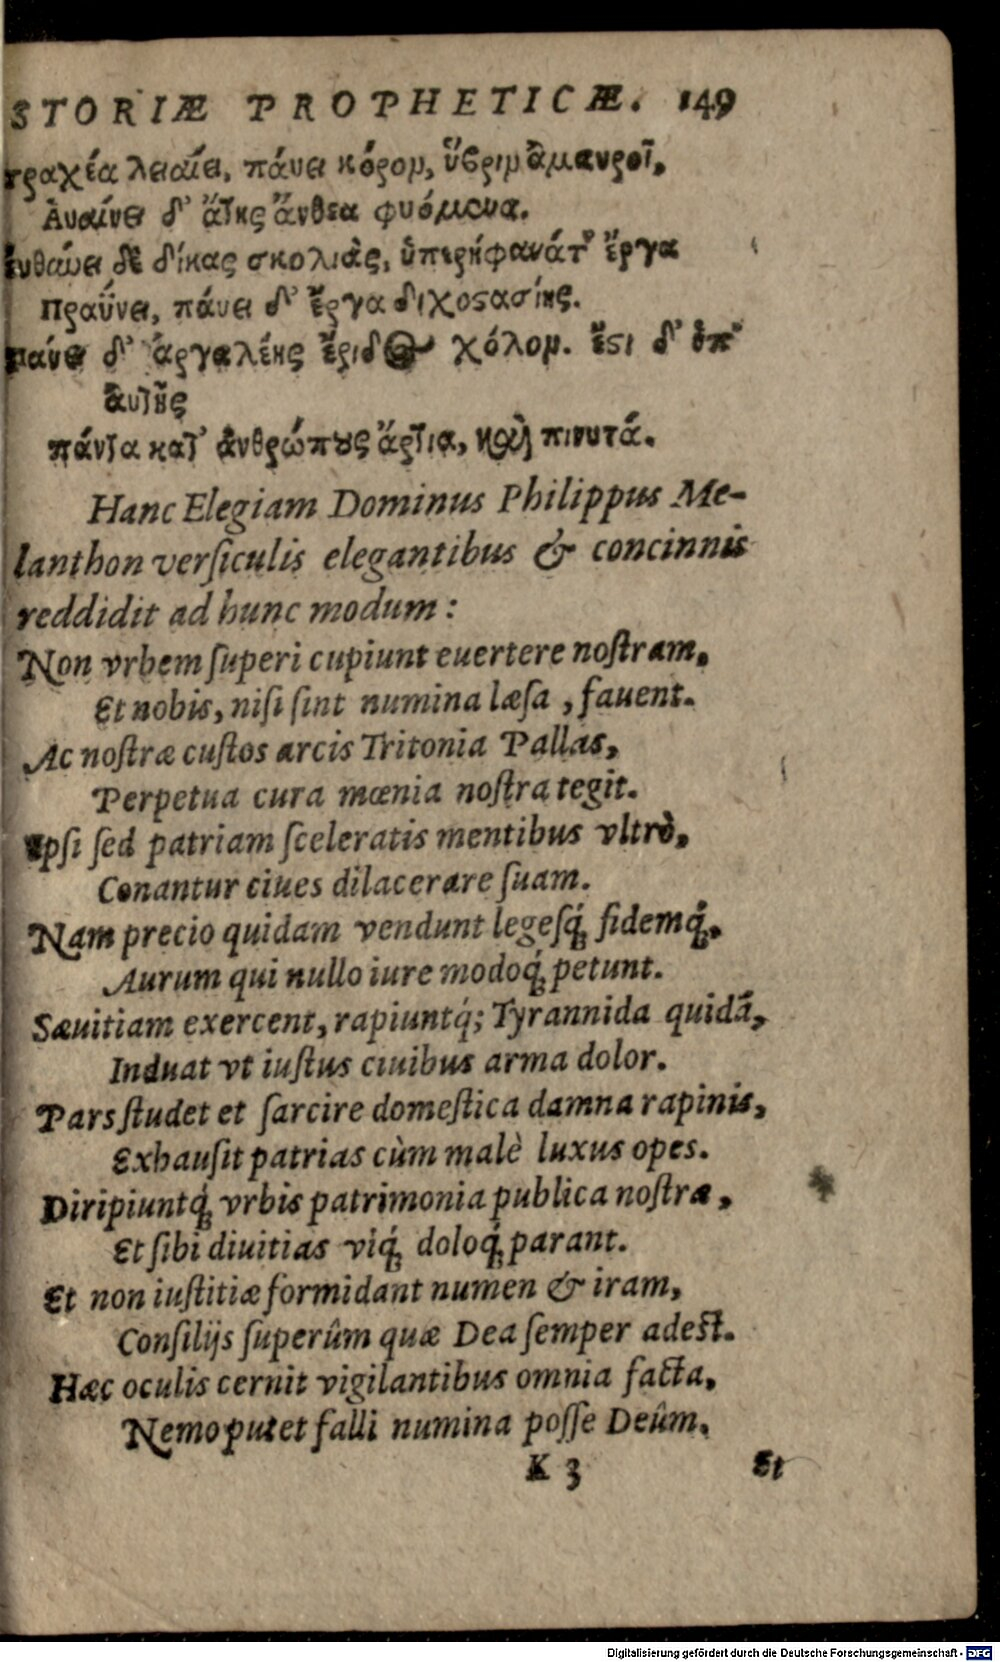 STORIÆ PROPHETICÆ. 149
τραχέα λειαίει, παύει κόρον, ὕβριν ἀμαυροῖ,
Αὐαίνει δ' ἄτης ἄνθεα φυόμενα.
ἐυθύνει δὲ δίκας σκολιὰς, ὑπερήφανάτ' ἔργα
Πραΰνει, παύει δ' ἔργα διχοστασίης.
παύει δ' ἀργαλέης ἔριδος χόλον. ἔστι δ' ὑπ'
ἀυτῆς
πάντα κατ' ἀνθρώπους ἄρτια, καὶ πινυτά.
Hanc Elegiam Dominus Philippus Me-
lanthon verſiculis elegantibus & concinnis
reddidit ad hunc modum:
Non vrbem ſuperi cupiunt euertere noſtram,
Et nobis, niſi ſint numina læſa, fauent.
Ac noſtræ cuſtos arcis Tritonia Pallas,
Perpetua cura mœnia noſtra tegit.
Ipſi ſed patriam ſceleratis mentibus vltrò,
Conantur ciues dilacerare ſuam.
Nam precio quidam vendunt legeſq́; fidemq́;.
Aurum qui nullo iure modoq́; petunt.
Sæuitiam exercent, rapiuntq́; Tyrannida quidã,
Induat vt iuſtus ciuibus arma dolor.
Pars ſtudet et ſarcire domeſtica damna rapinis,
Exhauſit patrias cùm malè luxus opes.
Diripiuntq́; vrbis patrimonia publica noſtræ,
Et ſibi diuitias viq́; doloq́; parant.
Et non iuſtitiæ formidant numen & iram,
Conſilijs ſuperûm quæ Dea ſemper adeſt.
Hæc oculis cernit vigilantibus omnia facta,
Nemo putet falli numina poſſe Deûm.
K 3 Et
Digitalisierung gefördert durch die Deutsche Forschungsgemeinschaft - DFG